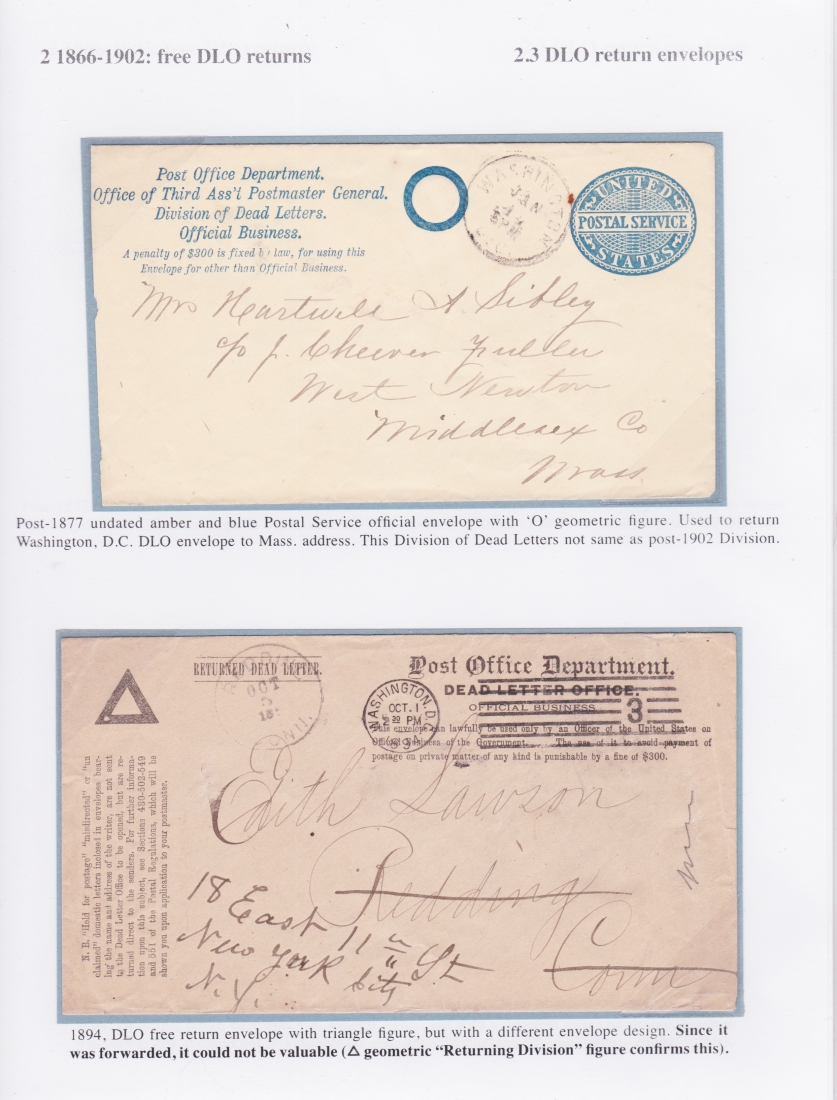 2 1866-1902: free DLO returns
2.3 DLO return envelopes
Post Office Department.
Office of Third Ass't Postmaster General.
Division of Dead Letters.
Official Business.
A penalty of $300 is fixed by law, for using this
Envelope for other than Official Business.
WASHINGTON
JAN
UNITED
POSTAL SERVICE
STATES
Mrs Hartwell A. Sibley
c/o J. Cheever Fuller
West Newton
Middlesex Co
Mass.
Post-1877 undated amber and blue Postal Service official envelope with ‘O’ geometric figure. Used to return
Washington, D.C. DLO envelope to Mass. address. This Division of Dead Letters not same as post-1902 Division.
RETURNED DEAD LETTER.
OCT
Post Office Department.
DEAD LETTER OFFICE.
OFFICIAL BUSINESS
This envelope can lawfully be used only by an Officer of the United States on
Official Business of the Government. The use of it to avoid payment of
postage on private matter of any kind is punishable by a fine of $300.
WASHINGTON, D.C.
OCT. 1
PM
3
N. B. "Held for postage" "misdirected" or "un
claimed" domestic letters inclosed in envelopes bear-
ing the name and address of the writer, are not sent
to the Dead Letter Office to be opened, but are re-
turned direct to the senders. For further informa-
tion upon this subject, see Sections
of the Postal Regulations, which will be
shown you upon application to your postmaster.
Edith Lawson
Redding
Conn
18 East 11 St
New York City
N.Y.
1894, DLO free return envelope with triangle figure, but with a different envelope design. Since it
was forwarded, it could not be valuable (△ geometric “Returning Division” figure confirms this).